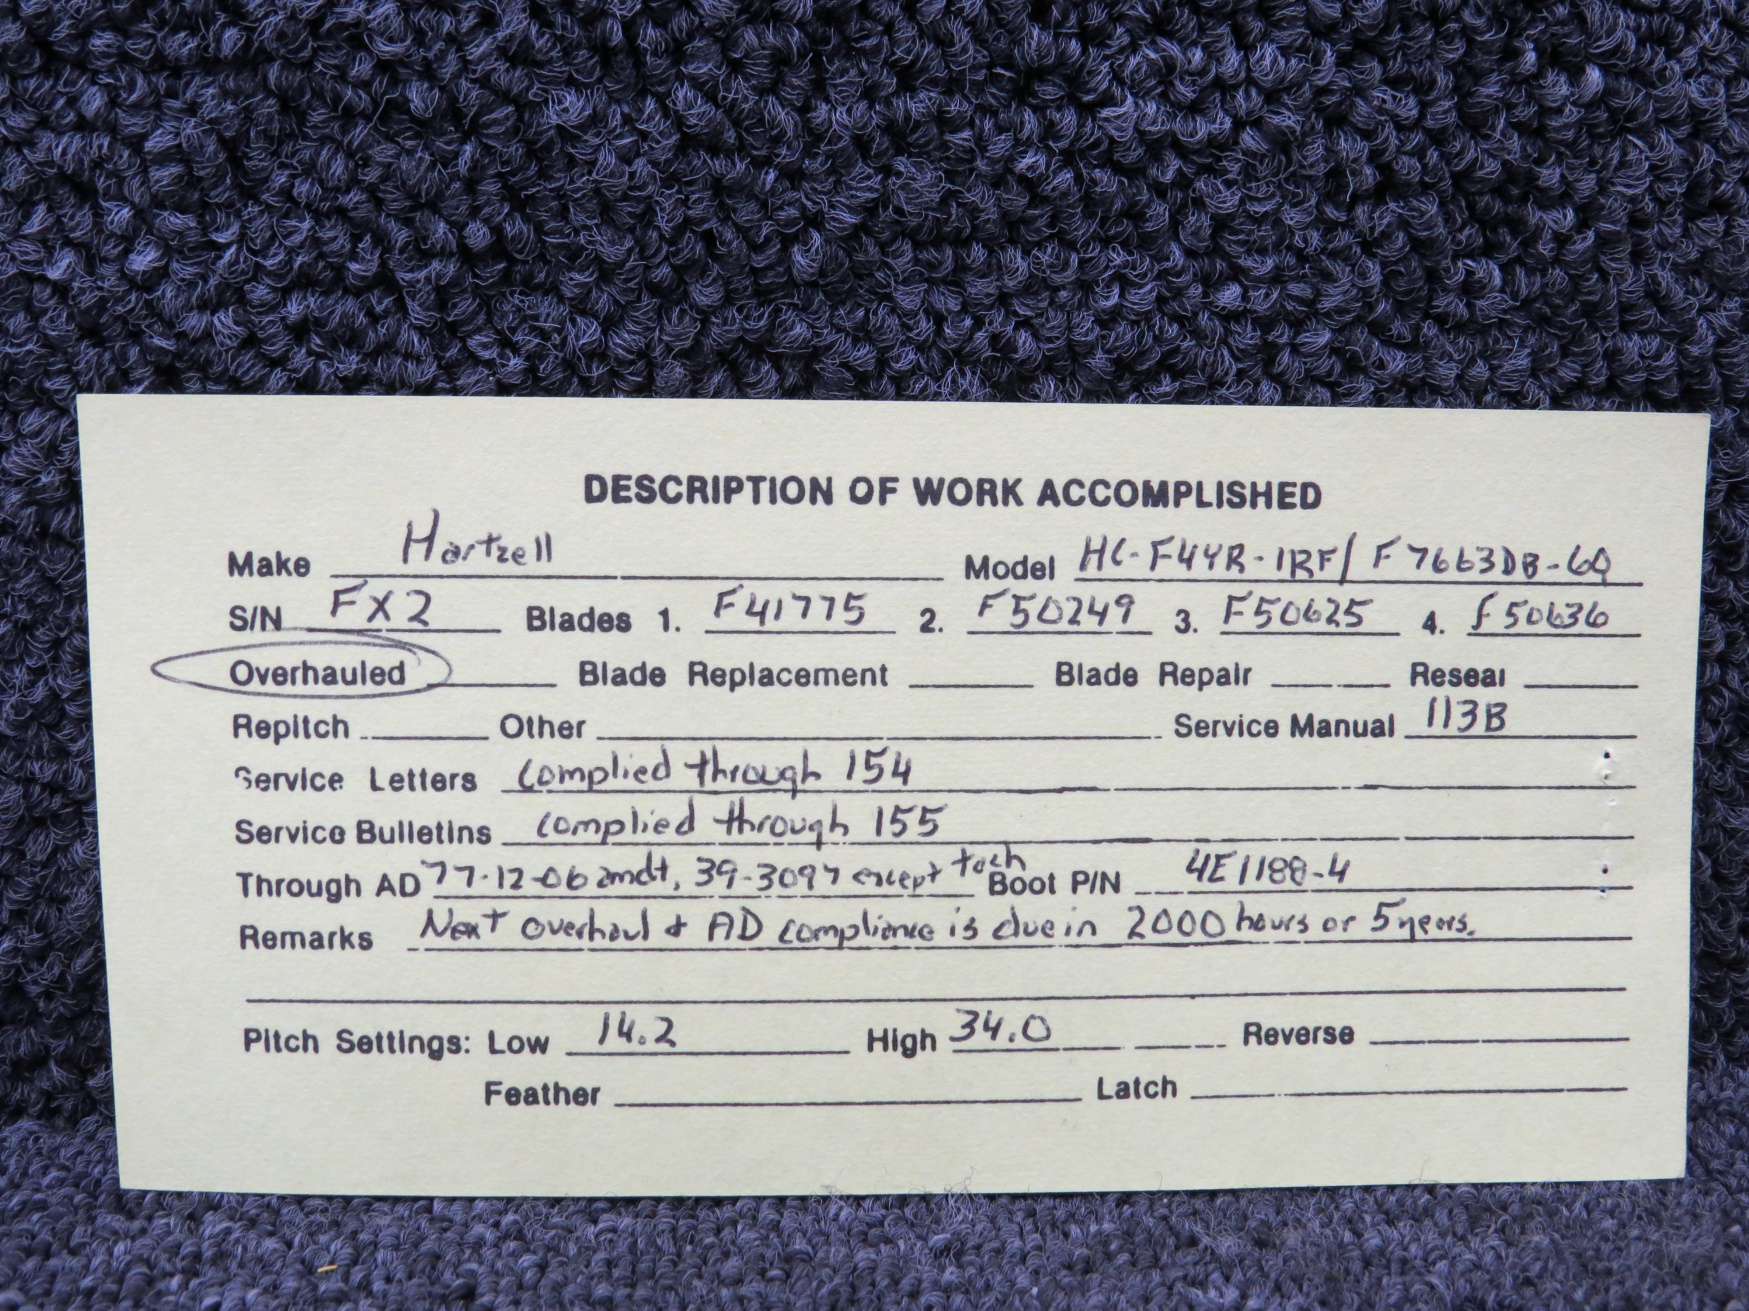 DESCRIPTION OF WORK ACCOMPLISHED
Make Hartzell Model HC-F4YR-1RF/F7663DB-6Q
S/N FX2 Blades 1. F41775 2. F50249 3. F50625 4. F50636
Overhauled Blade Replacement Blade Repair Reseal
Repitch Other Service Manual 113B
Service Letters complied through 154
Service Bulletins complied through 155
Through AD 77-12-06 amdt, 39-3097 except tach Boot P/N 4E1188-4
Remarks Next overhaul & AD compliance is due in 2000 hours or 5 years.
Pitch Settings: Low 14.2 High 34.0 Reverse
Feather Latch